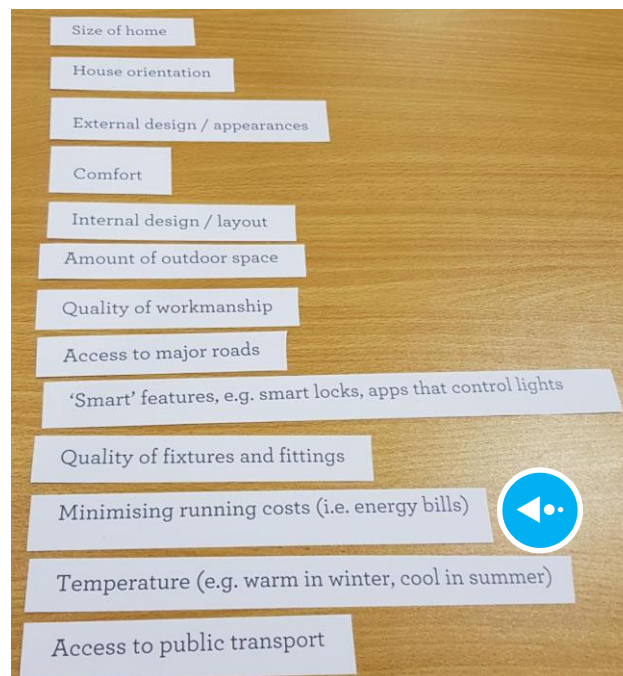 Size of home
House orientation
External design / appearances
Comfort
Internal design / layout
Amount of outdoor space
Quality of workmanship
Access to major roads
‘Smart’ features, e.g. smart locks, apps that control lights
Quality of fixtures and fittings
Minimising running costs (i.e. energy bills)
Temperature (e.g. warm in winter, cool in summer)
Access to public transport